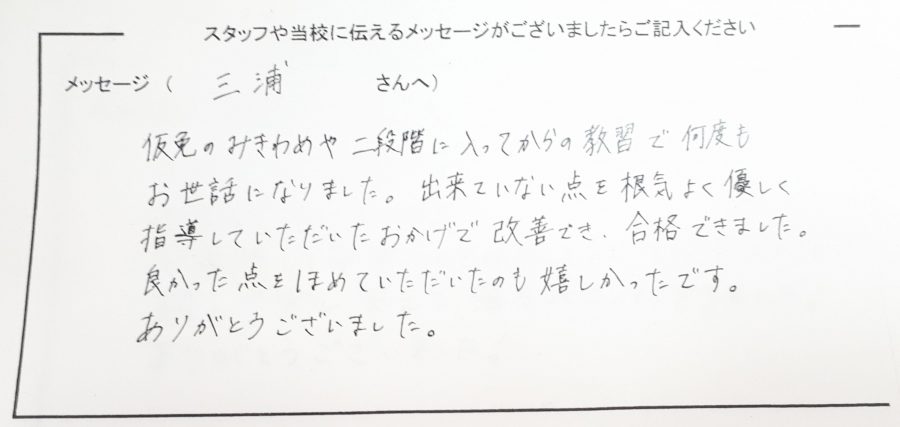 スタッフや当校に伝えるメッセージがございましたらご記入ください
メッセージ（ 三浦 さんへ）
仮免のみきわめや二段階に入ってからの教習で何度も
お世話になりました。出来ていない点を根気よく優しく
指導していただいたおかげで改善でき、合格できました。
良かった点をほめていただいたのも嬉しかったです。
ありがとうございました。